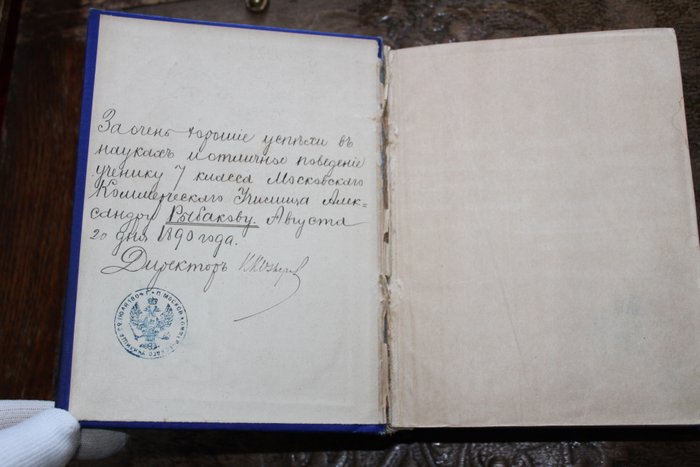 За очень хорошіе успѣхи въ
наукахъ и отличное поведеніе
ученику 7 класса Московскаго
Коммерческаго Училища Алек-
сандру Рыбакову. Августа
20 дня 1890 года.
Директоръ